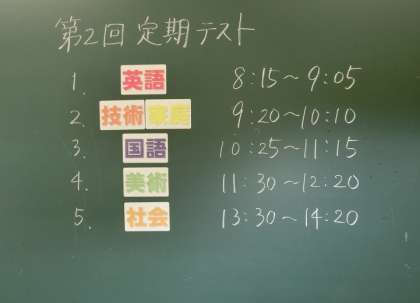 第2回 定期テスト
1. 英語 8:15～9:05
2. 技術 家庭 9:20～10:10
3. 国語 10:25～11:15
4. 美術 11:30～12:20
5. 社会 13:30～14:20